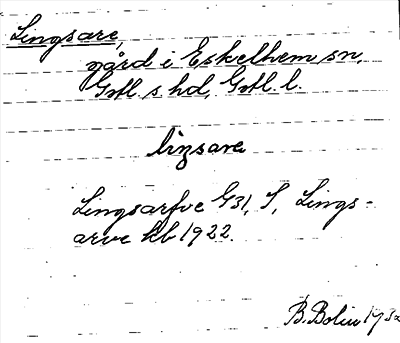 Lingsare,
gård i Eskelhem sn,
Gotl. s. hd, Gotl. l.
liŋsarə
Lingsarfve G31, S, Lings-
arve kb 1922.
B. Bolin 1932